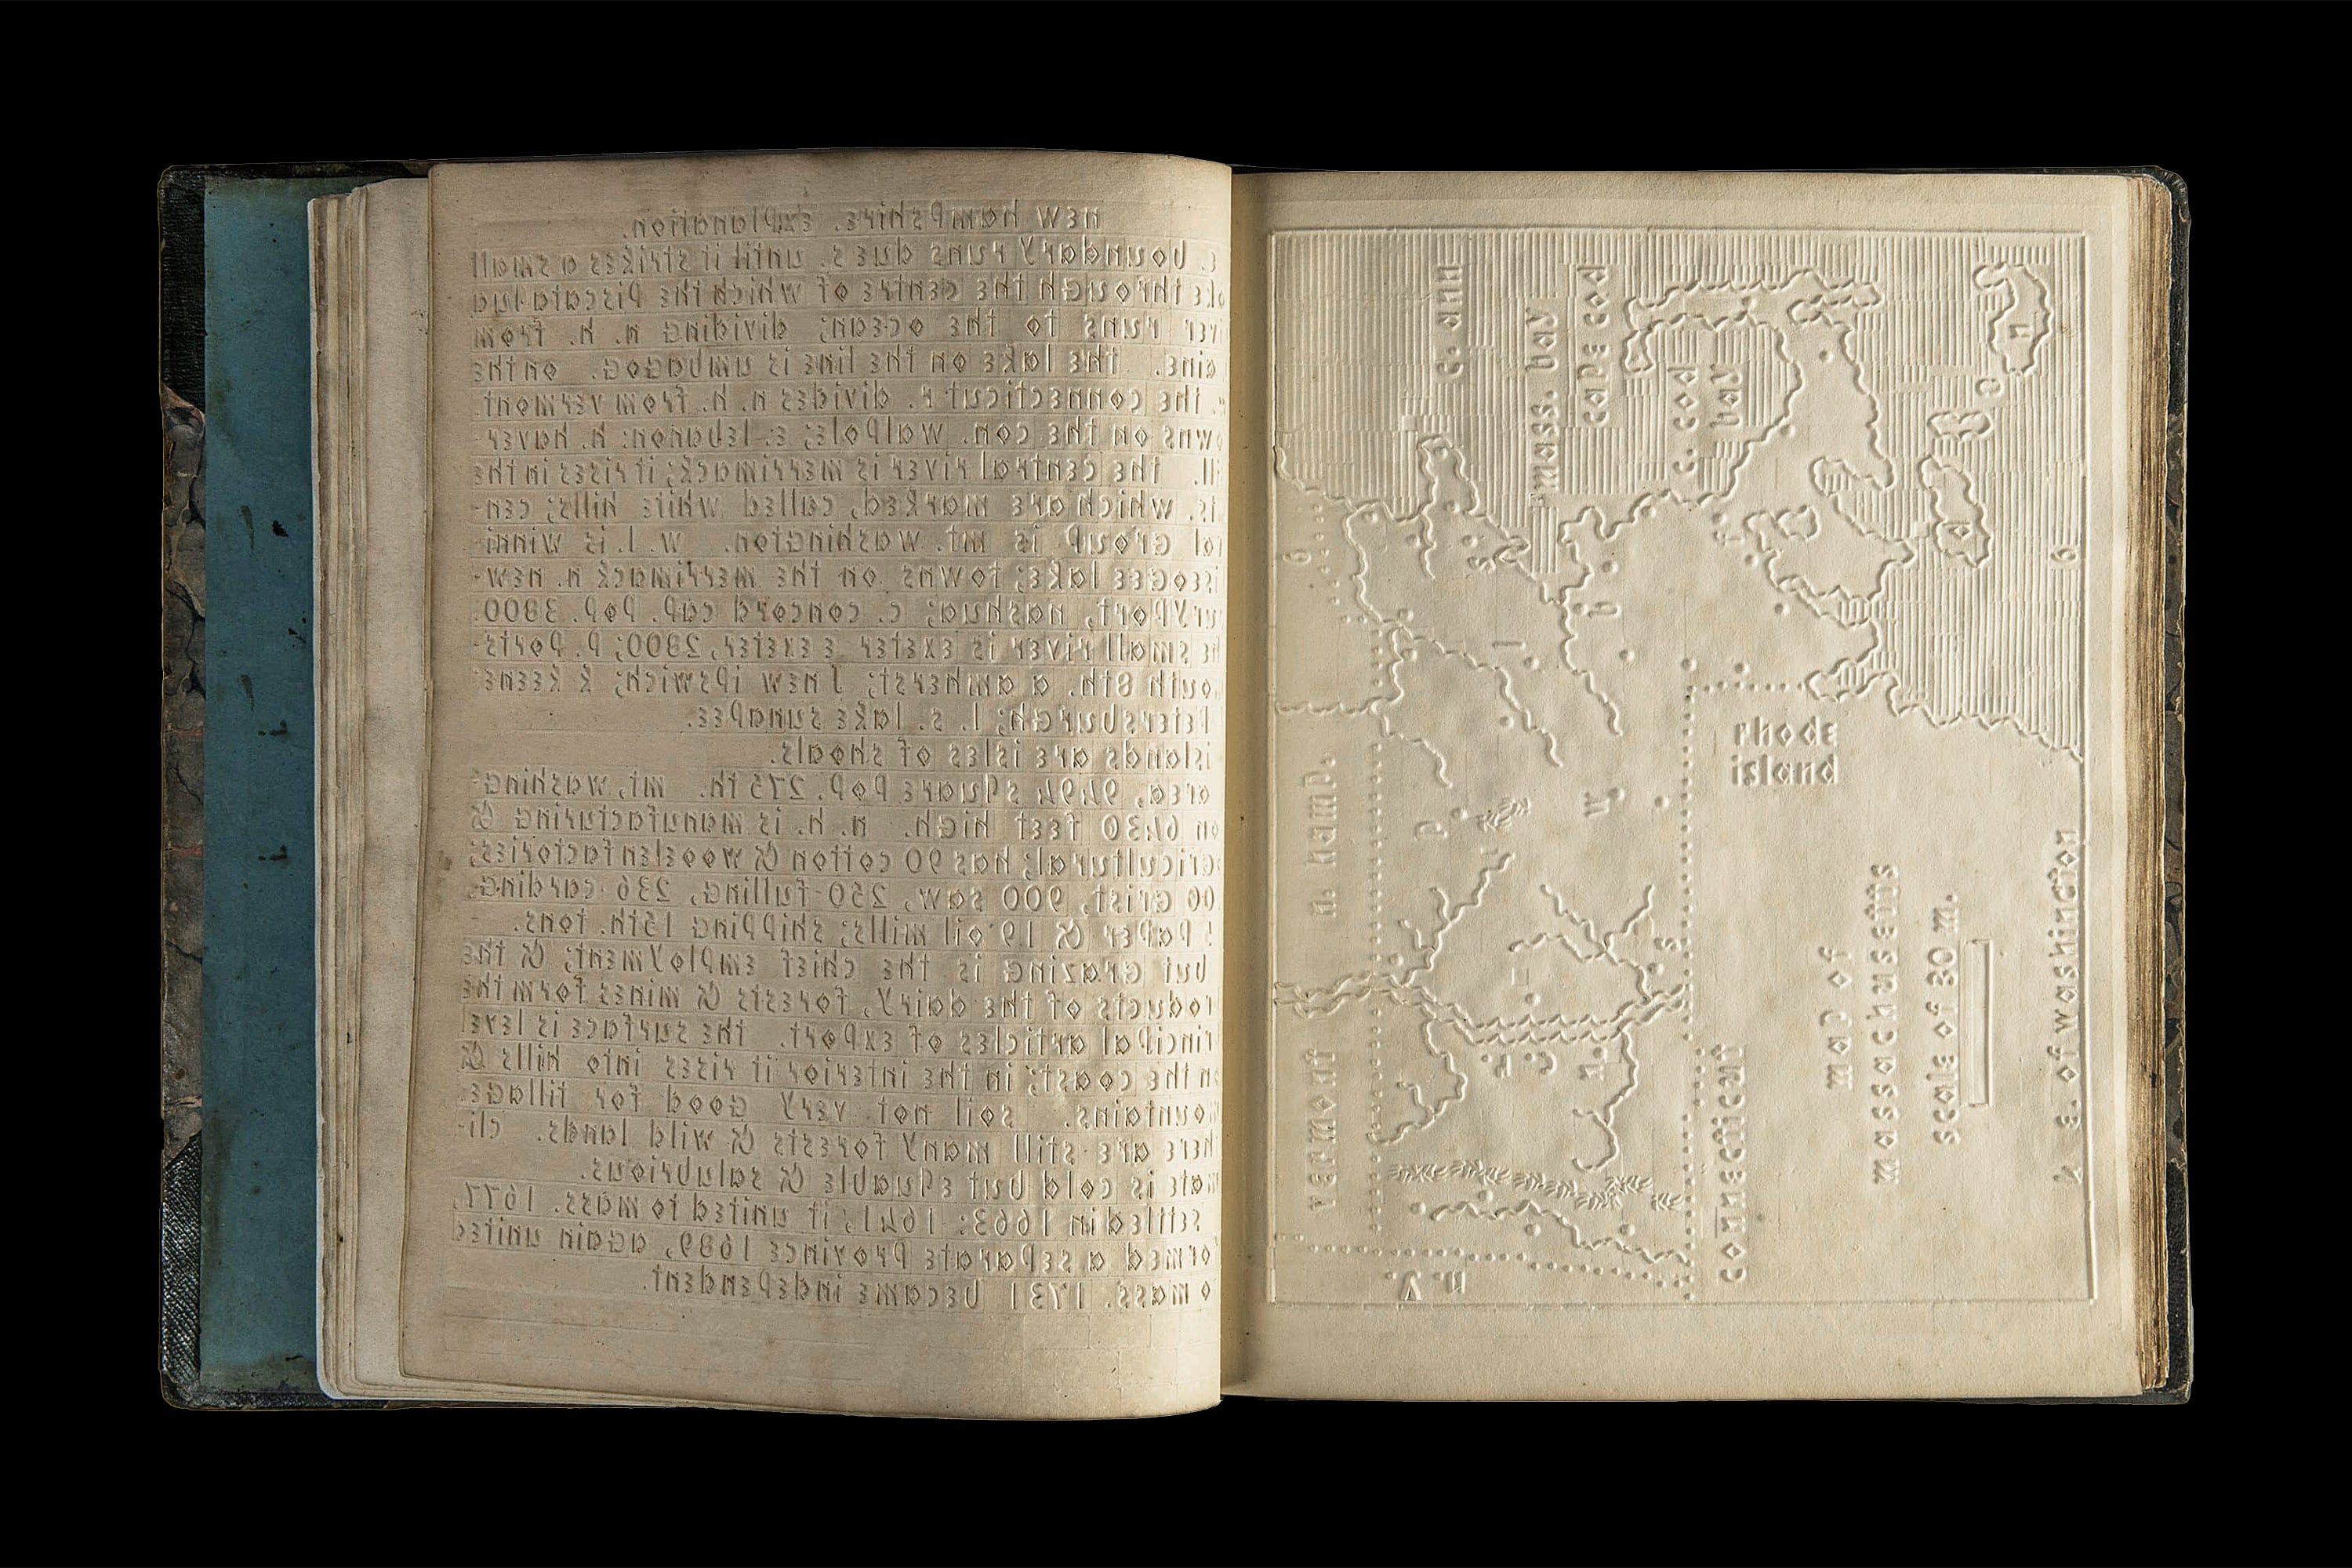 new hampshire. explanation.
e. boundary runs due s. until it strikes a small
ke through the centre of which the piscataqua
ver runs to the ocean; dividing n. h. from
aine. the lake on the line is umbagog. on the
the connecticut r. divides n. h. from vermont
owns on the con. walpole; e. lebanon: h. haver-
ll. the central river is merrimack; it rises in the
ts. which are marked, called white hills; cen-
ral group is mt. washington. w. l. is winni
iseogee lake; towns on the merrimack n. new-
uryport, nashua; c. concord cap. pop. 3800.
he small river is exeter e exeter, 2800; p. ports-
outh 8th. a amherst; J new ipswich; k keene
petersburgh; l. s. lake sunapee.
islands are isles of shoals.
area, 9494 square pop. 275th. mt, washing-
on 6430 feet high. n. h. is manufacturing &
gricultural; has 90 cotton & wooelen factories;
00 grist, 900 saw, 250 fulling, 236 carding,
5 paper & 19 oil mills; shipping 15th. tons.
but grazing is the chief employment; & the
roducts of the dairy, forests & mines form the
rincipal articles of export. the surface is level
on the coast; in the interior it rises into hills &
mountains. soil not very good for tillage
here are still many forests & wild lands. cli-
mate is cold but equable & salubrious.
settled in 1663: 1641, it united to mass. 1677,
ormed a separate province 1689, again united
o mass. 1731 became independent.
c. ann
mass. bay
cape cod
c. cod
bay
n
6
6
s
b
l
rhode
island
n. hamp.
p
w
s
vermont
n.
connecticut
n.y.
map of
massachusetts
scale of 30 m.
4 e. of washington